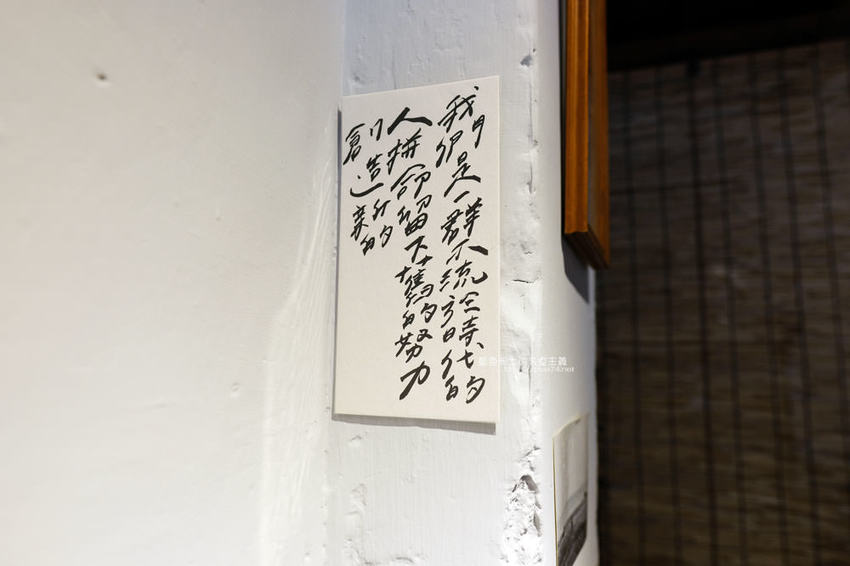 我們是一群不統治時代的
人拼命留下舊的努力
創造新的